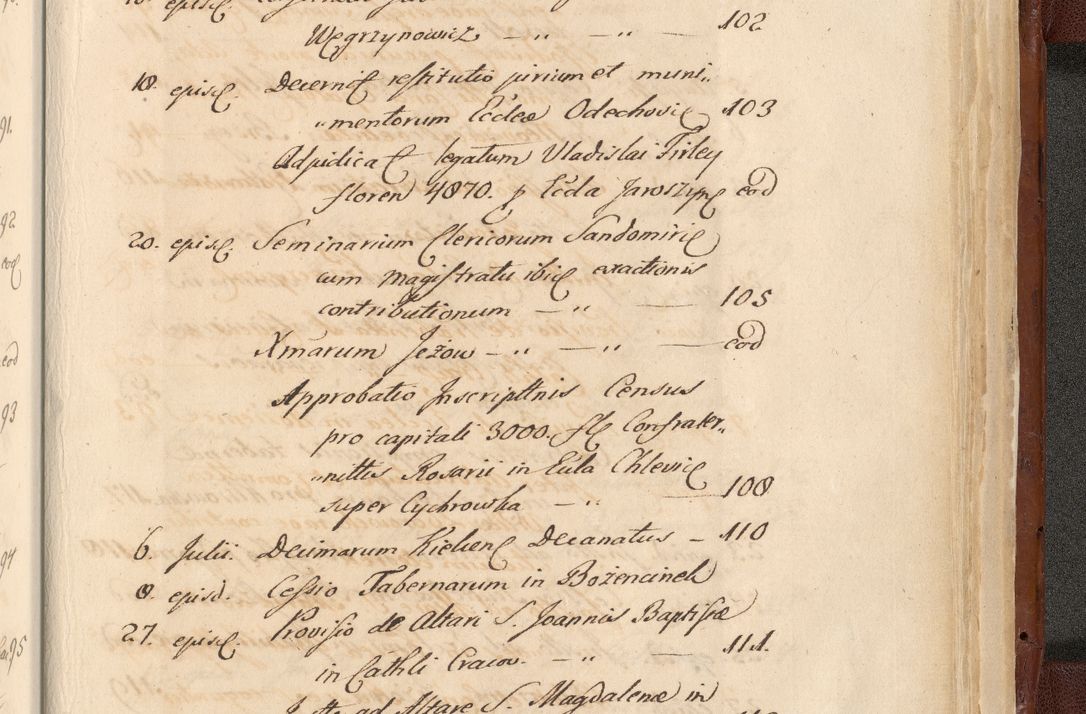 Węgrzynowicz — „ — „ — 102
18. episd. Decernit restitutio jurium et muni„
„mentorum Eccleæ Odechovie 103
Adjudicat legatum Vladislai Firley
floren 4870. p Eccla Jaroszyn eod
20. episd. Seminarium Clericorum Sandomirie
cum magistratu ibid exactionis
contributionum — „ — 105
Xmarum Jeżow — „ — „ — eod
Approbatio Inscriptnis Census
pro capitali 3000. fl Confrater„
„nittis Rosarii in Eccla Chlevie
super Cychrowska — „ — 108
6. Julii. Decimarum Kielcen Decanatus — 110
8. episd. Cessio Tabernarum in Bożencinek
27. episd. Provisio de Altari S. Joannis Baptistæ
in Cathli Cracov. — „ — 111.
ad Altare S. Magdalenæ in